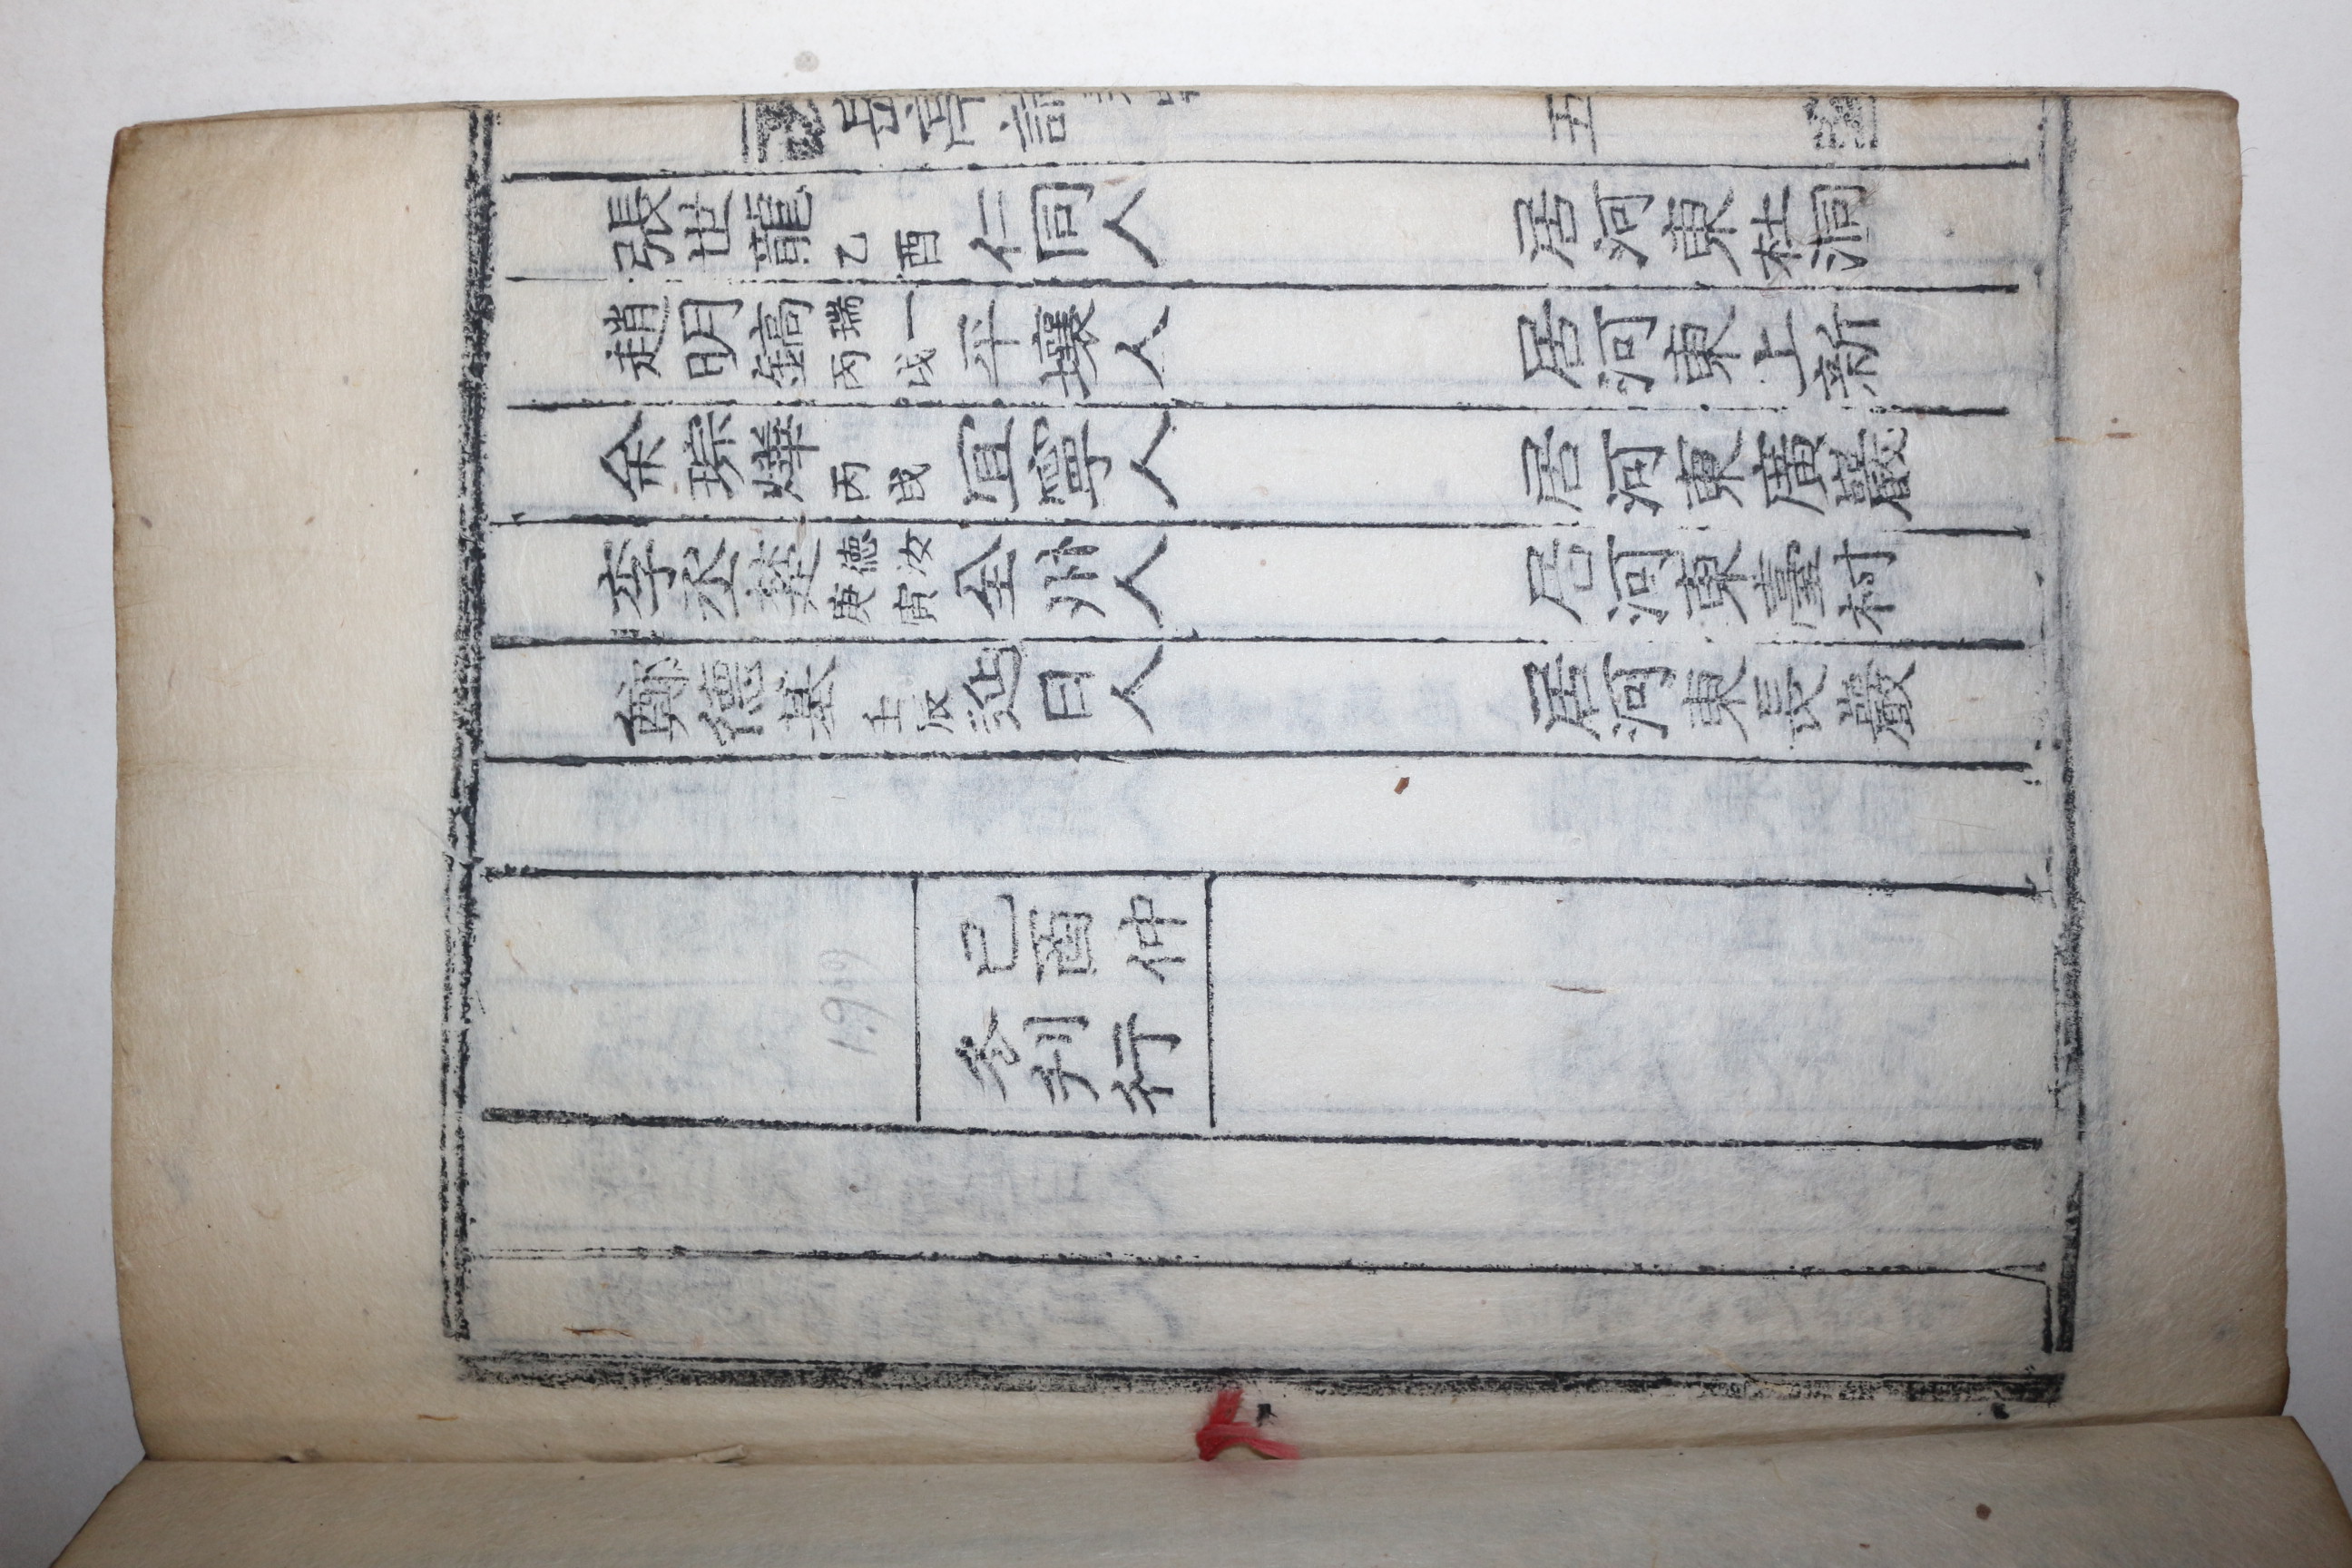 岳亭詩
五
張世龍 乙酉 仁同人 居河東杜洞
趙明鎬 瑞一 丙戌 平壤人 居河東上新
余琮燁 丙戌 宜寧人 居河東廣巖
李丞 德汝 庚寅 全州人 居河東臺村
鄭德基 壬辰 迎日人 居河東長巖
己酉仲
冬刊行
1969